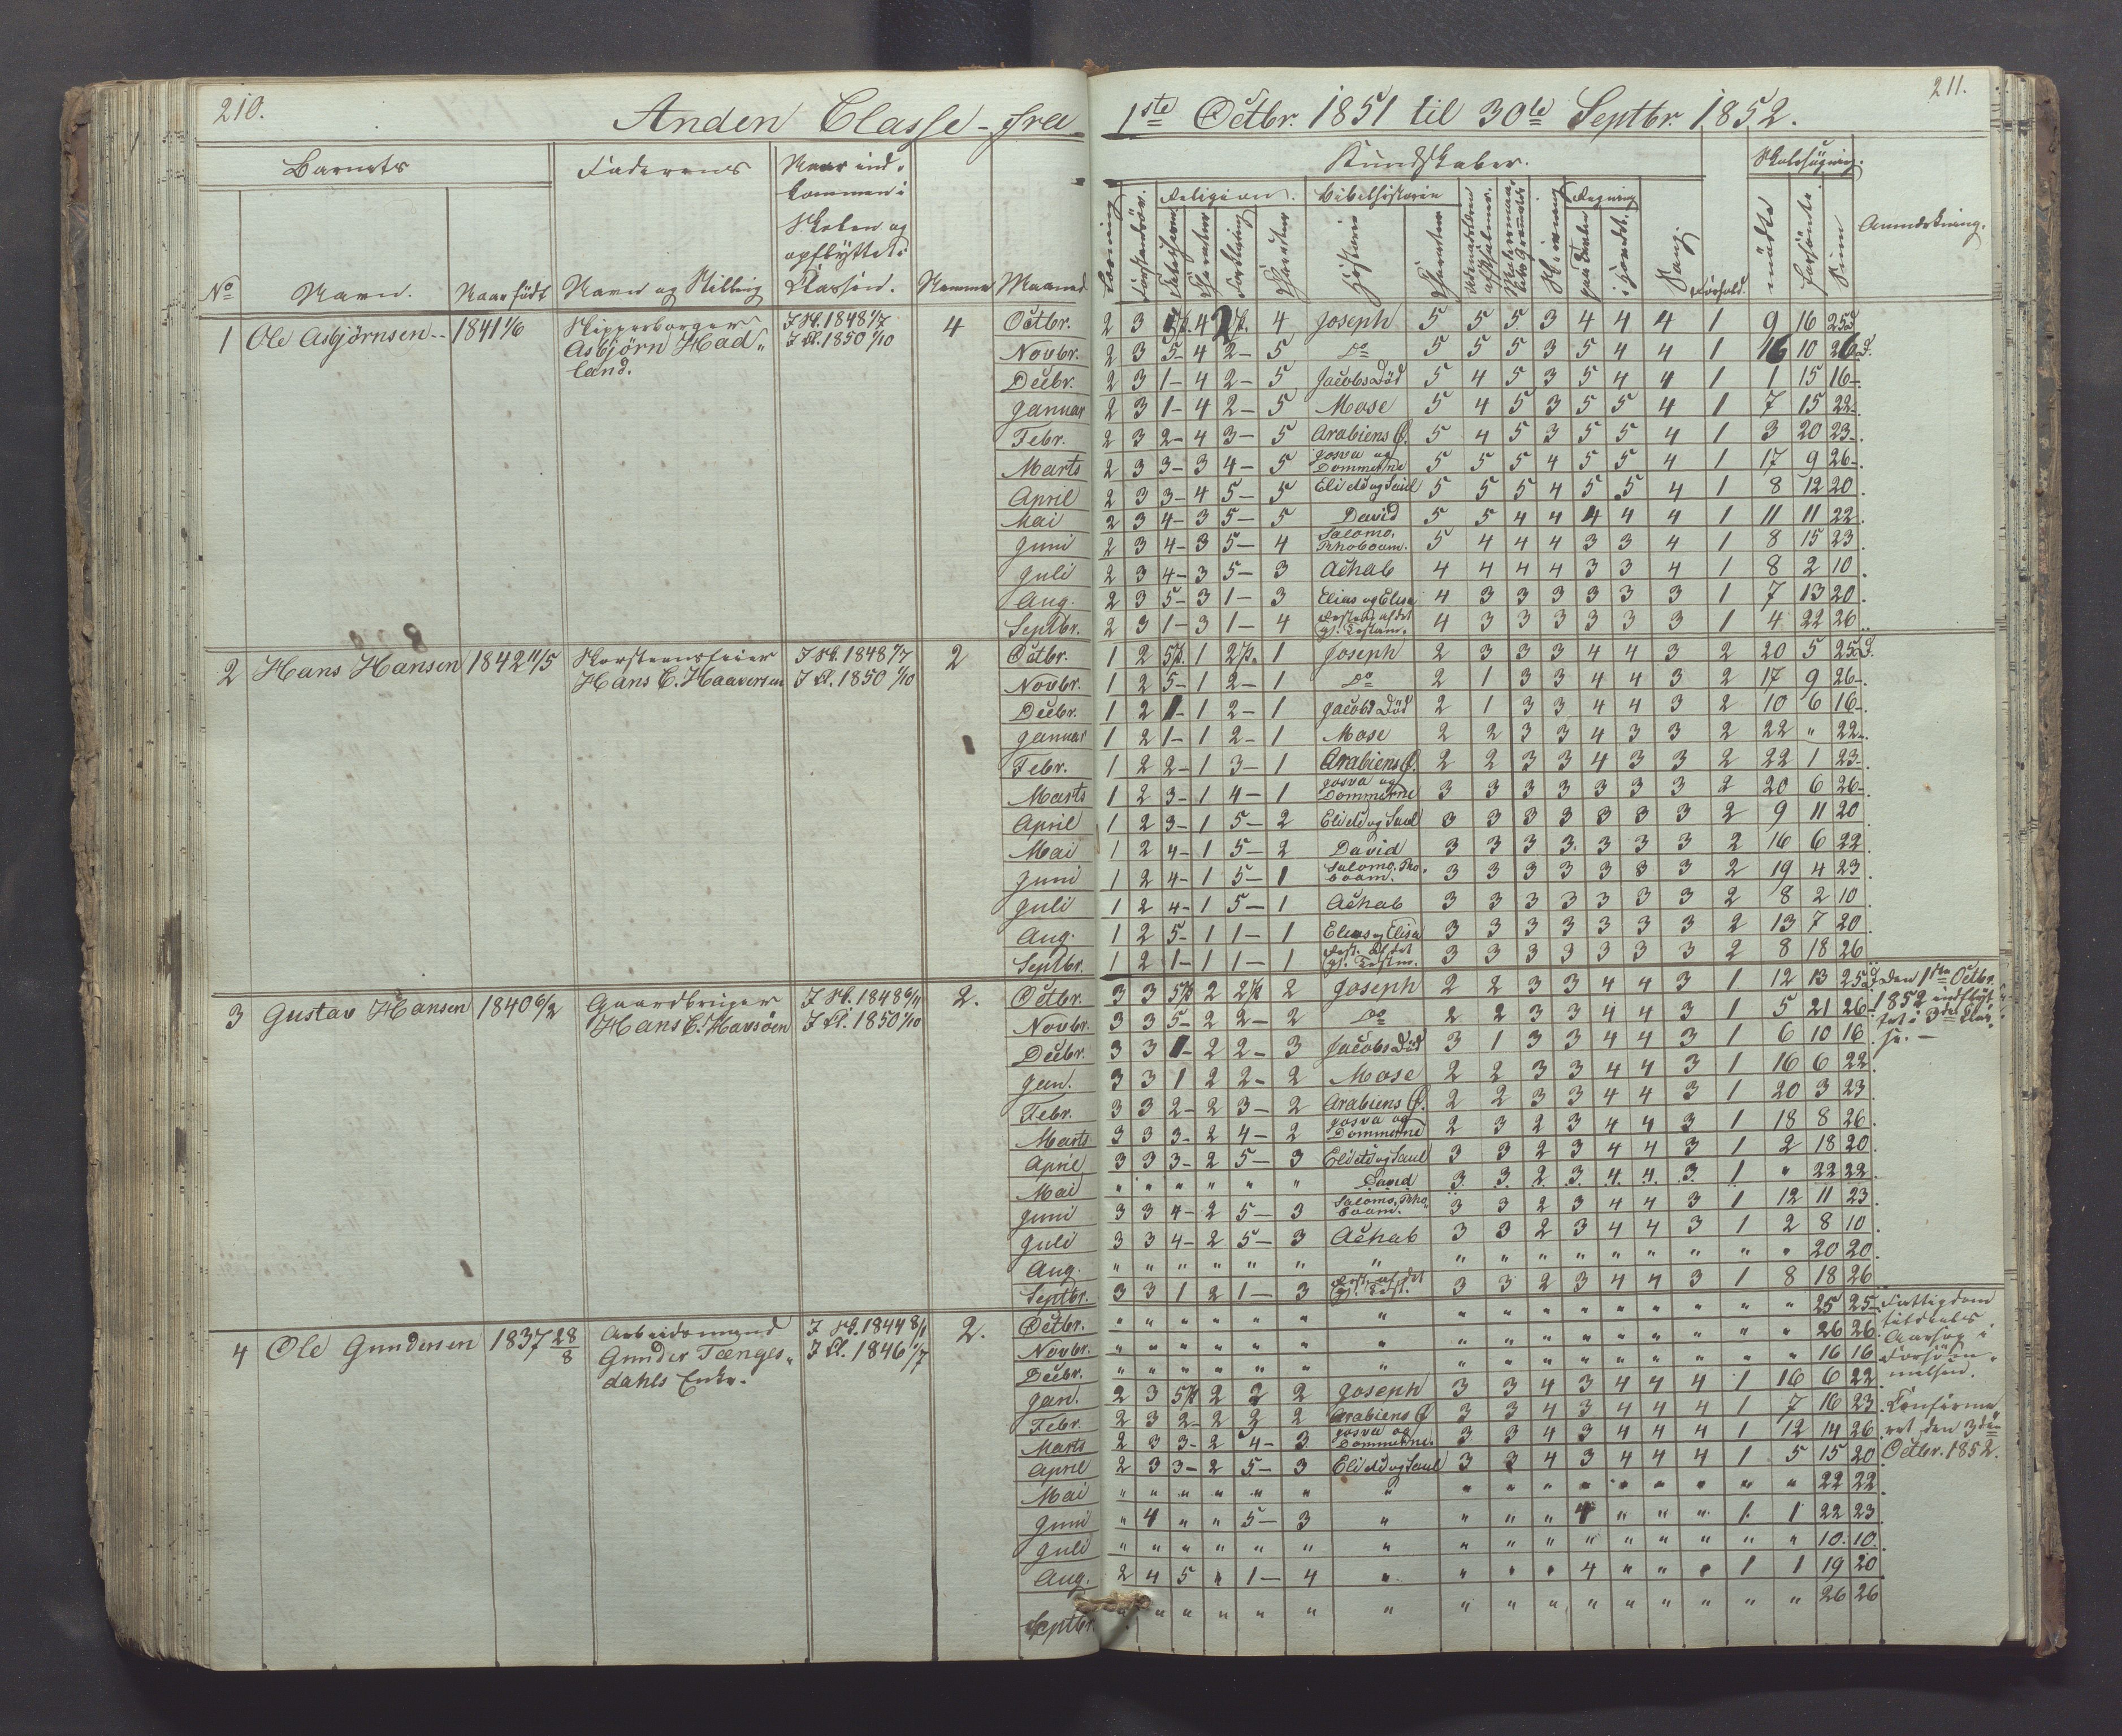 210.
Anden Classe - fra
1ste Octbr. 1851 til 30te Septbr. 1852.
211.
Barnets
Faderens
Naar ind-
kommen i
Skolen og
opflyttet i
Classen.
No
Navn.
Naar født
Navn og Stilling
Nummer
Maaned
Kundskaber.
Skolesøgning.
Læsning
Religion.
Bibelhistorie
Historie
Skrivning
Regning
Sang.
Forhold.
mødte
forsømte
Sum
Anmærkning.
1 Ole Asbjørnsen 1841 1/6
Skipperborger
Asbjørn Had-
land.
I Sk. 1848 1/7
I Cl. 1850 1/10
4
Octbr. 2 3 4 4 Joseph 5 5 5 3 4 4 4 1 9 16 25 D
Novbr. 2 3 5- 4 2- 5 Do 5 5 5 3 5 4 4 1 16 10 26 D.
Decbr. 2 3 1- 4 2- 5 Jacobs Død 5 4 5 3 5 4 4 1 1 15 16-
Januar 2 3 1- 4 2- 5 Mose 5 4 5 3 5 5 4 1 7 15 22-
Febr. 2 3 2- 4 3- 5 Arabiens Ø. 5 4 5 3 5 5 4 1 3 20 23-
Marts 2 3 3- 3 4- 5 Josva og Dommerne 5 5 5 4 5 5 4 1 17 9 26-
April 2 3 3- 4 5- 5 Eli og Saul 5 5 5 4 5 5 4 1 8 12 20
Mai 2 3 4- 3 5- 5 David 5 5 4 4 4 4 4 1 11 11 22
Juni 2 3 4- 3 5- 4 Salomo, Rhoboam. 5 4 4 4 3 3 4 1 8 15 23
Juli 2 3 4- 3 5- 3 Achab 4 4 4 4 3 3 4 1 8 2 10
Aug. 2 3 5- 3 1- 3 Elias og Elisa 4 3 3 3 3 3 3 1 7 13 20
Septbr. 2 3 1- 3 1- 4 Resten af det gl. Testam. 4 3 3 3 3 3 3 1 4 22 26
2 Hans Hansen 1842 11/5
Skorsteensfeier
Hans C. Haaversen
I Sk. 1848 1/7
I Cl. 1850 1/10
2
Octbr. 1 2 5 1 2 1 Joseph 2 3 3 3 4 4 3 2 20 5 25 D.
Novbr. 1 2 5- 1 2- 1 Do 2 1 3 3 4 4 3 2 17 9 26-
Decbr. 1 2 1- 1 2- 1 Jacobs Død 2 1 3 3 4 4 3 2 10 6 16-
Januar 1 2 1- 1 2- 1 Mose 2 2 3 3 4 3 3 2 22 " 22-
Febr. 1 2 2- 1 3- 1 Arabiens Ø. 2 2 3 3 4 3 3 2 22 1 23-
Marts 1 2 3- 1 4- 1 Josva og Dommerne 3 3 3 3 3 3 3 2 20 6 26-
April 1 2 3- 1 5- 2 Eli og Saul 3 3 3 3 3 3 3 2 9 11 20
Mai 1 2 4- 1 5- 2 David 3 3 3 3 3 3 3 2 16 6 22
Juni 1 2 4- 1 5- 1 Salomo. Rhoboam. 3 3 3 3 3 3 3 2 19 4 23
Juli 1 2 4- 1 5- 1 Achab 3 3 3 3 3 3 3 2 8 2 10
Aug. 1 2 5- 1 1- 1 Elias og Elisa 3 3 3 3 3 3 3 2 13 7 20
Septbr. 1 2 1- 1 1- 1 Rest. af det gl. Testm. 3 3 3 3 3 3 3 2 8 18 26
3 Gustav Hansen 1840 6/2
Gaardbruger
Hans C. Havsøen
I Sk. 1848 6/11
I Cl. 1850 1/10
2.
Octbr. 3 3 5 2 2 2 Joseph 2 2 3 3 4 4 3 1 12 13 25
Novbr. 3 3 5- 2 2- 2 Do 2 2 3 3 4 4 3 1 5 21 26
Decbr. 3 3 1- 2 2- 3 Jacobs Død 3 1 3 3 4 4 3 1 6 10 16
Jan. 3 3 1 2 2- 2 Mose 2 2 3 3 4 4 3 1 16 6 22
Febr. 3 3 2- 2 3- 2 Arabiens Ø. 2 2 3 3 4 4 3 1 20 3 23
Marts 3 3 3- 2 4- 2 Josva og Dommerne 2 3 2 3 4 4 3 1 18 8 26
April 3 3 3- 2 5- 3 Eli og Saul 3 3 2 3 4 4 3 1 2 18 20
Mai " " " " " " David 3 3 2 3 4 4 3 1 " 22 22
Juni 3 3 4- 2 5- 3 Salomo, Rhoboam. 3 3 2 3 4 4 3 1 12 11 23
Juli 3 3 4- 2 5- 3 Achab 3 3 2 3 4 4 3 1 2 8 10
Aug. " " " " " " " " " " " " " " " " 20 20
Septbr. 3 3 1 2 1- 3 Rest. af det gl. Test. 3 3 2 3 4 4 3 1 8 18 26
Den 1ste Octbr.
1852 indflyt-
tet i 3die Clas-
se. -
4 Ole Gundersen 1837 28/8
Arbeidsmand
Gunder Tænges-
dahls Enke.
I Sk. 1844 8/1
I Cl. 1846 1/7
2.
Octbr. " " " " " " " " " " " " " " " " 25 25-
Novbr. " " " " " " " " " " " " " " " " 26 26
Decbr. " " " " " " " " " " " " " " " " 16 16
Jan. 2 3 5 2 2 2 Joseph 3 3 4 3 4 4 4 1 16 6 22
Febr. 2 3 2- 2 2 2 Arabiens Ø 3 3 4 3 4 4 4 1 7 16 23
Marts 2 3 3- 2 4- 3 Josva og Dommerne. 3 3 4 3 4 4 4 1 12 14 26
April 2 3 3- 2 5- 3 Eli og Saul 3 3 4 3 4 4 4 1 5 15 20
Mai " " " " " " " " " " " " " " " " 22 22
Juni " 4 " " 5- 3 " " " " " 4 " " " 1 1 22 23
Juli " " " " " " " " " " " " " " " " 10 10
Aug. 2 4 5 " 1- 4 " " " " 4 " " " 1 1 19 20
Septbr. " " " " " " " " " " " " " " " " 26 26
Fattigdom
Aarsag i
Forsøm-
melsen.
Confirme-
ret den 3die
Octbr. 1852.